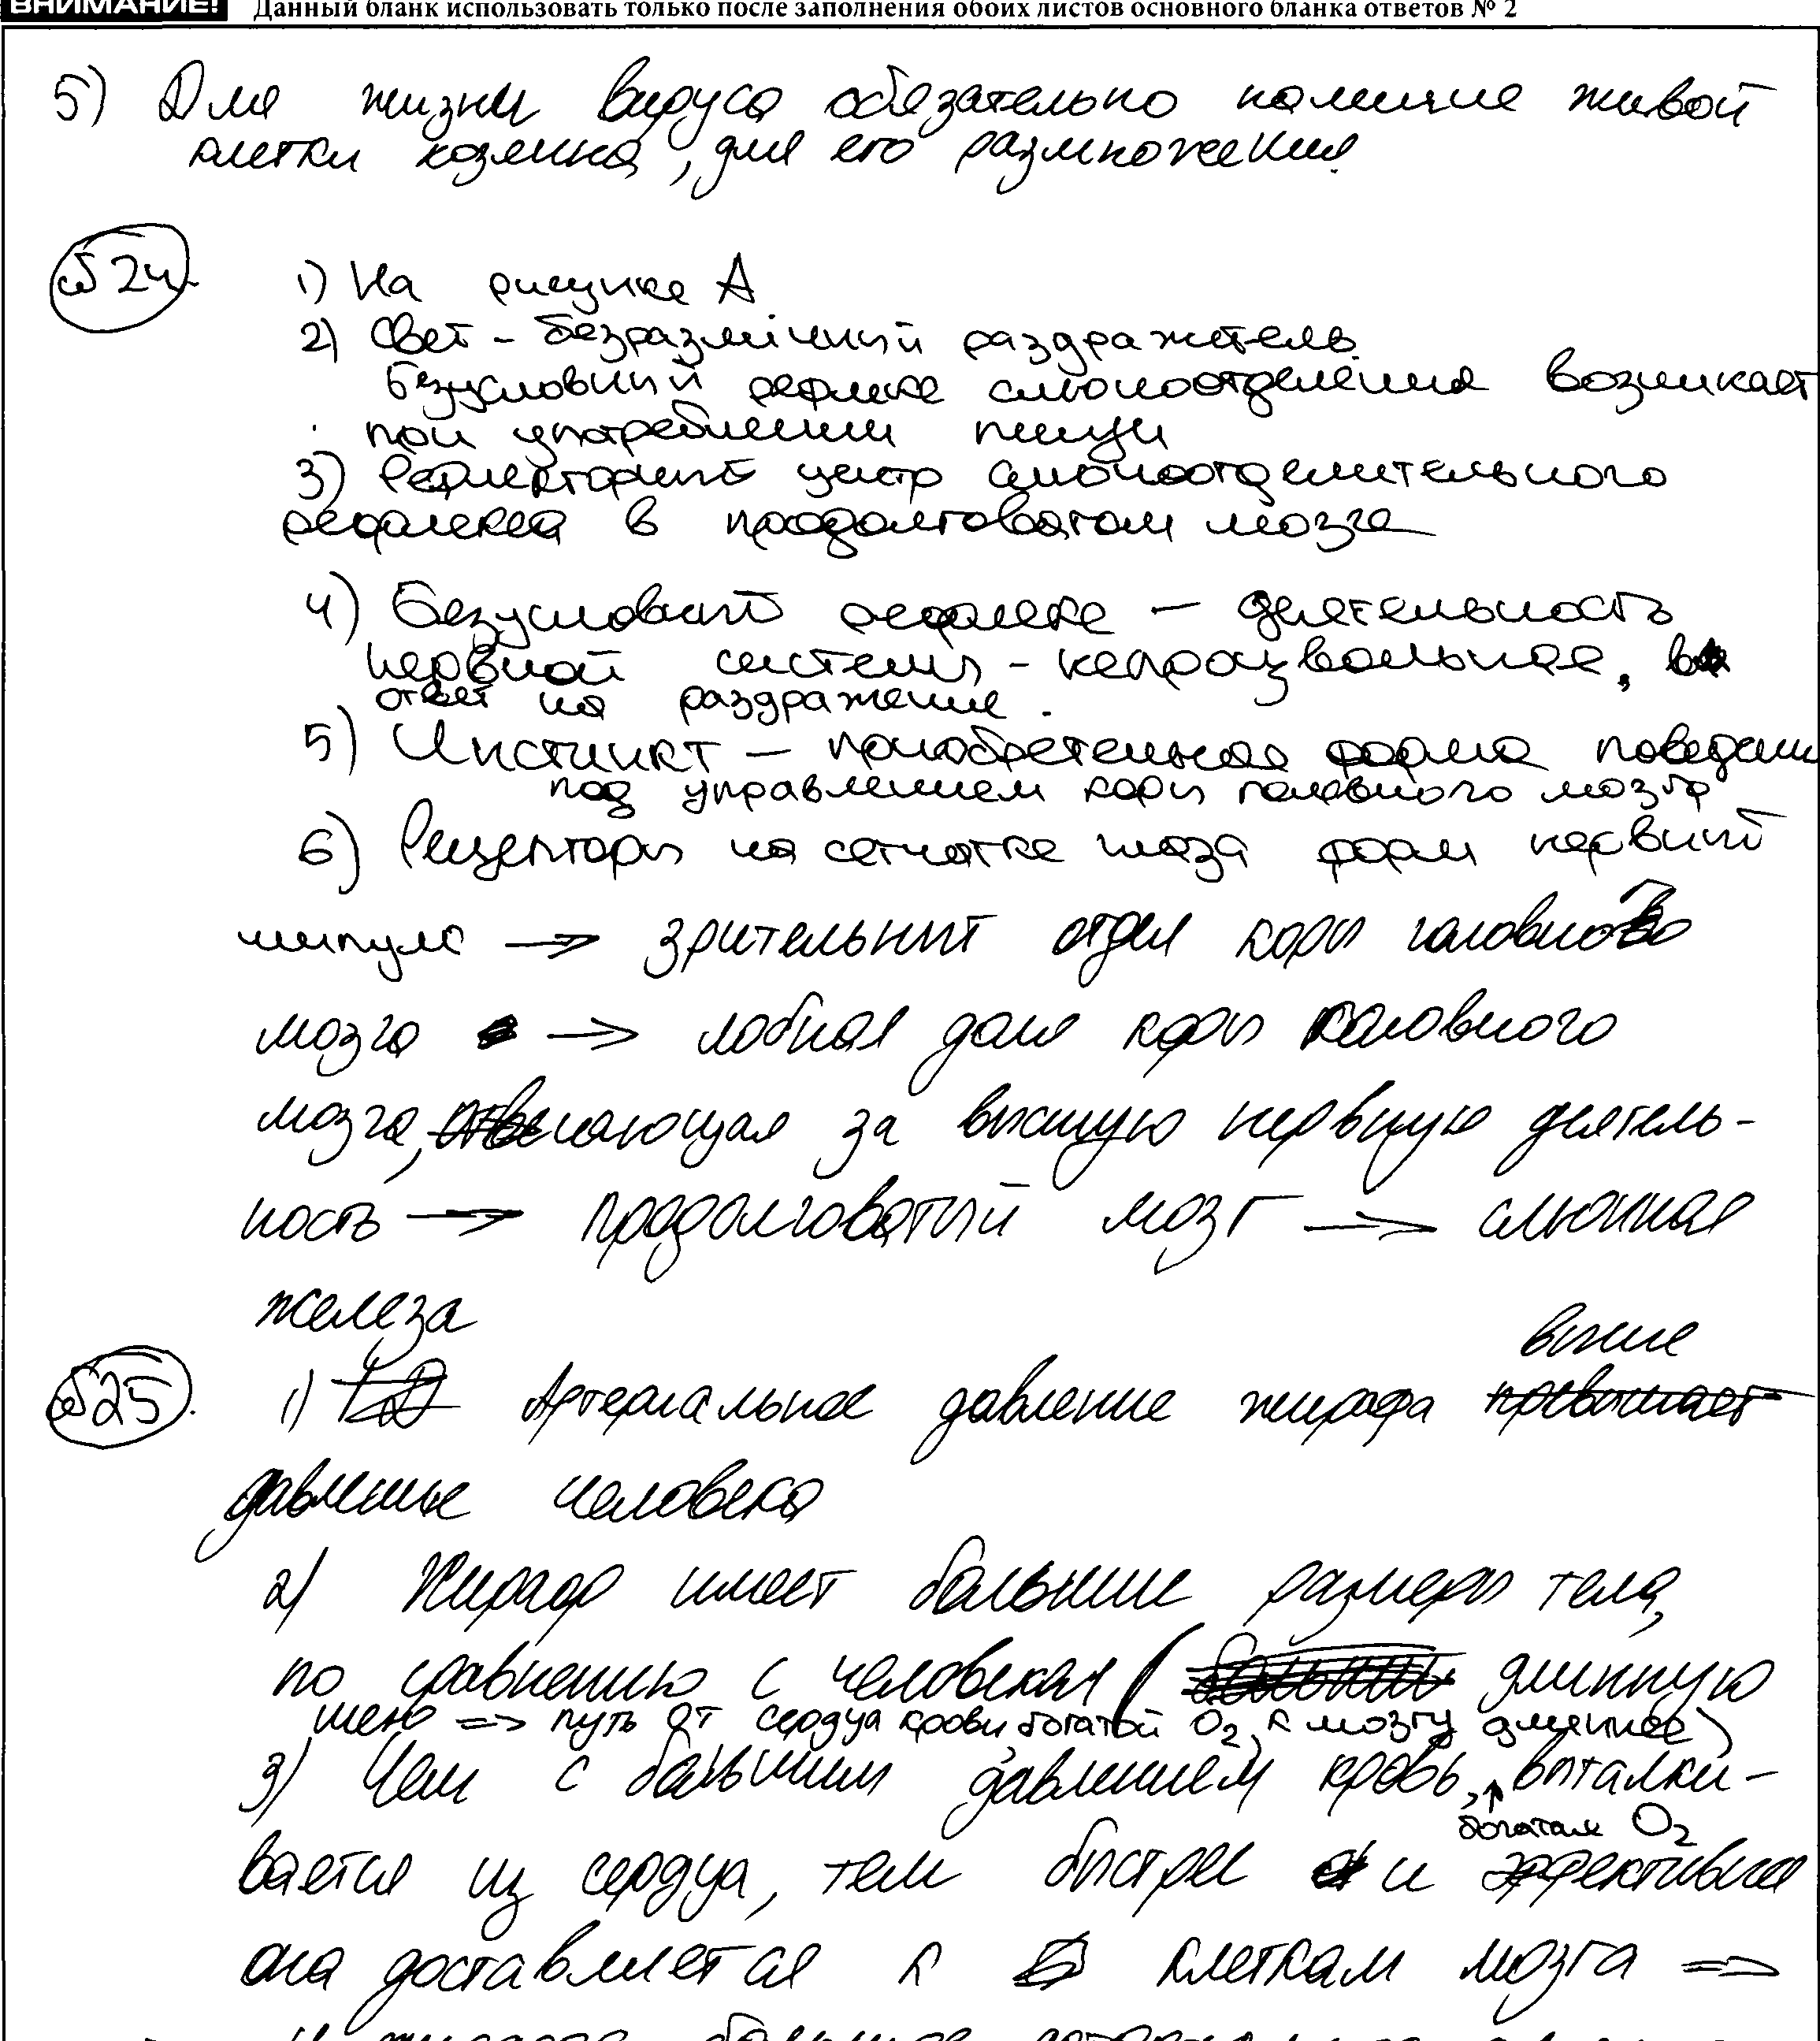 ВНИМАНИЕ! Данный бланк использовать только после заполнения обоих листов основного бланка ответов № 2
5) Для жизни вируса обязательно наличие живой
клетки хозяина, для его размножения.
№24.
1) На рисунке А
2) Свет - безразличный раздражитель.
Безусловный рефлекс слюноотделения возникает
при употреблении пищи
3) Рефлекторный центр слюноотделительного
рефлекса в продолговатом мозге
4) Безусловный рефлекс – деятельность
нервной системы - непроизвольная, в
ответ на раздражение.
5) Инстинкт – приобретенная форма поведени
под управлением коры головного мозга
6) Рецепторы на сетчатке глаза форм нервный
импульс → зрительный отдел коры головного
мозга → лобная доля коры головного
мозга, отвечающая за высшую нервную деятель-
ность → продолговатый мозг → слюнная
железа
выше
№25. 1) Артериальное давление жирафа превышает
давление человека
2) Жираф имеет большие размеры тела,
по сравнению с человеком ( длинную
шею => путь от сердца крови, богатой O2, к мозгу длиннее)
3) Чем с большим давлением кровь, выталки-
богатая O2
вается из сердца, тем быстрее и эффективнее
она доставляется к клеткам мозга =>